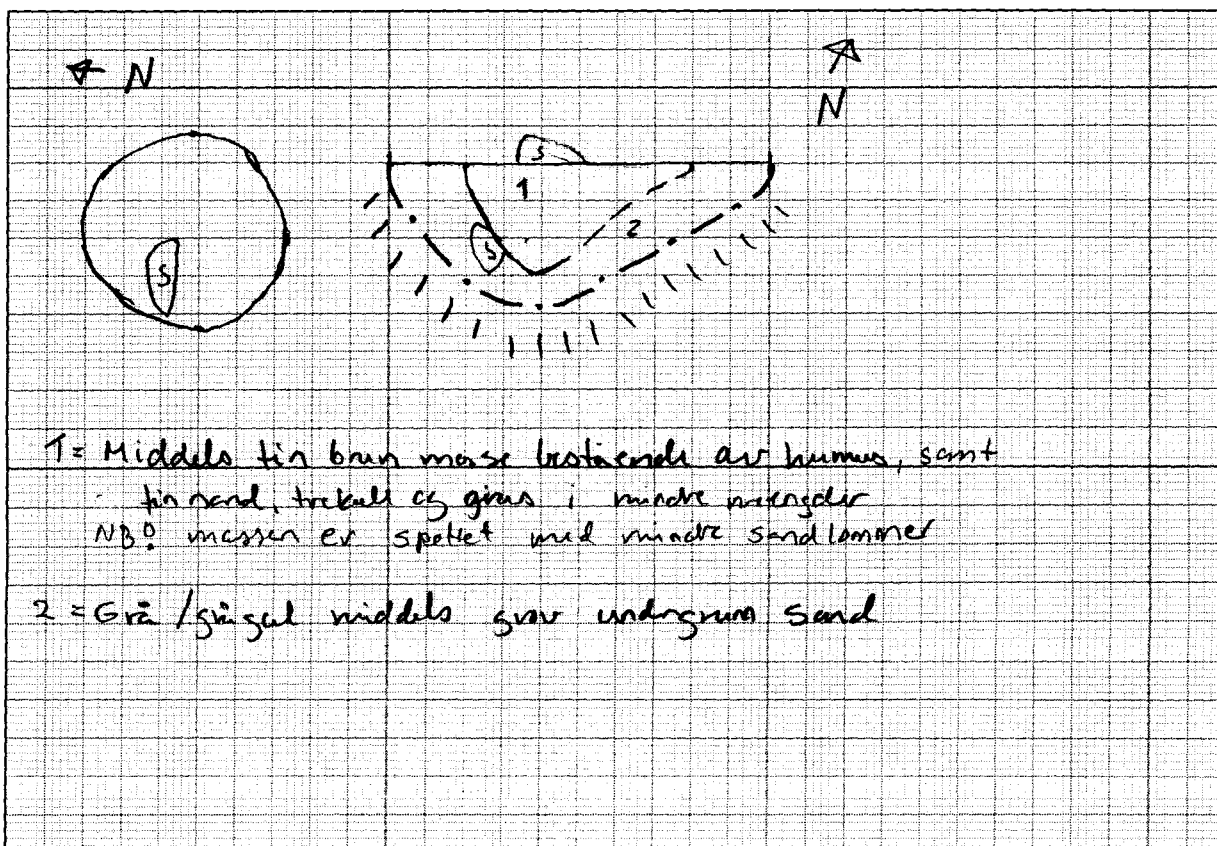 N
N
S
S
1
S
2
1= Middels fin brun masse bestående av humus, samt
fin sand, trekull og grus i mindre mengder
NB! massen er spettet med mindre sandlommer
2 = Grå /grågul middels grov undergrunn sand